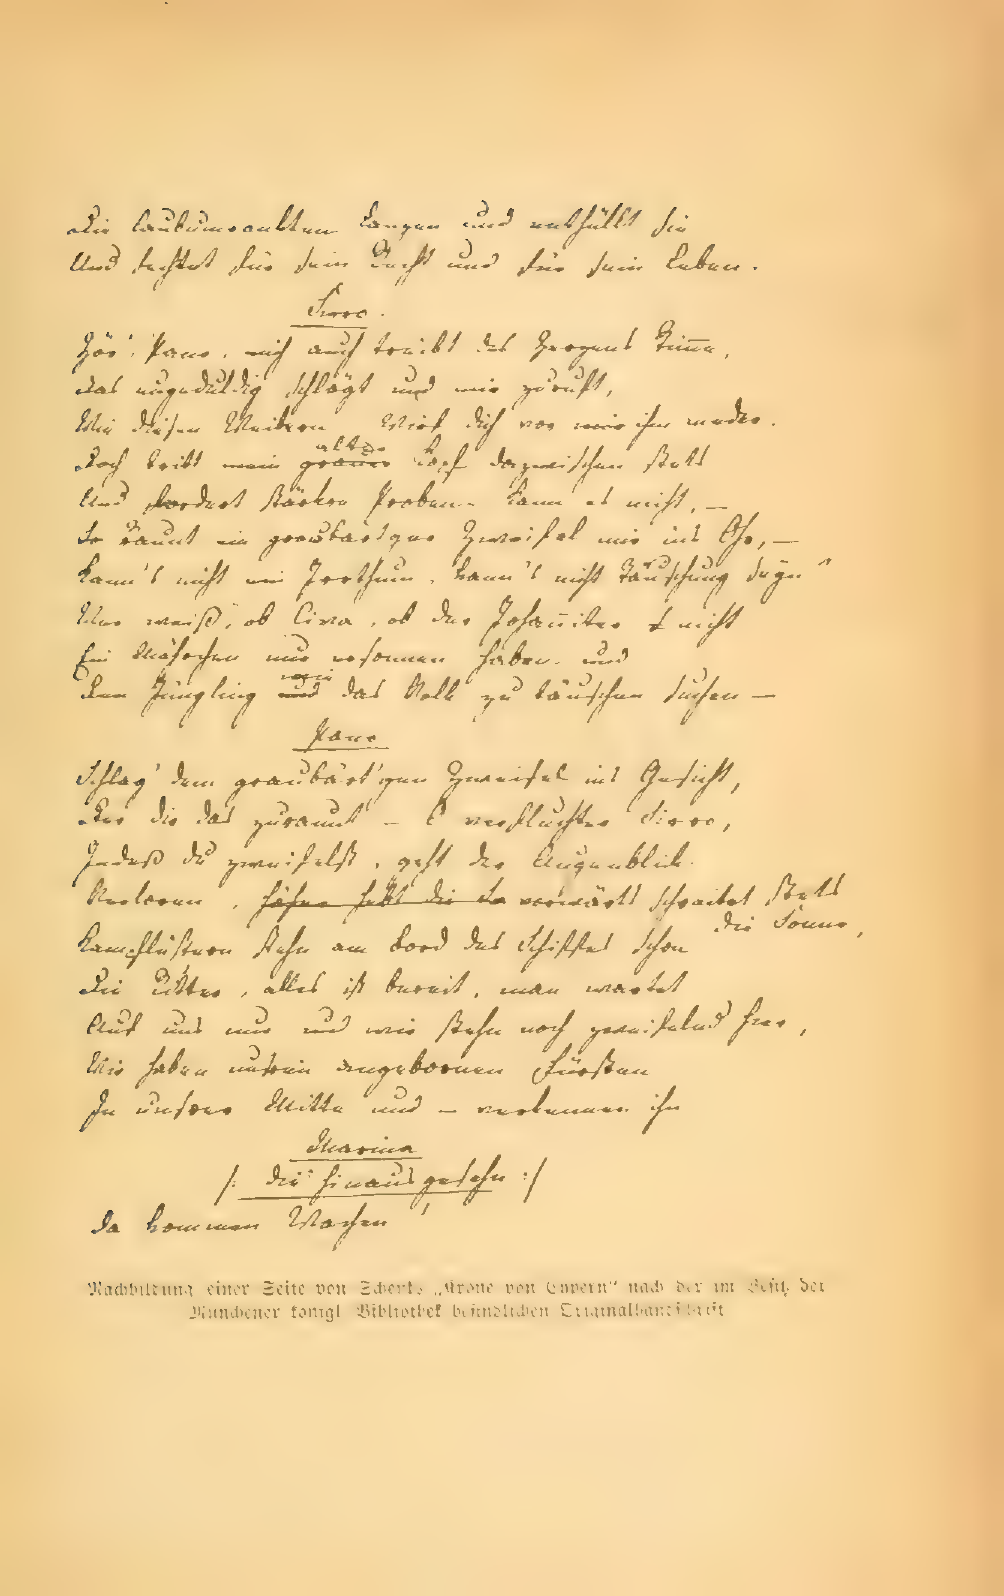 Die laubumrankten Lanzen und enthüllt sie
Und fechtet für sein Recht und für sein Leben.
Sirro.
Hör', Pano, mich auch treibt des Herzens Stimme,
das ungeduldig schlägt und mir zuruft,
Wie diesen Weibern Wirf dich vor mir ihm nieder.
Doch tritt mein grauer alter Kopf dazwischen stets
Und fordert stärkre Proben. Kann es nicht, —
So raunt ein graubärt'ger Zweifel mir ins Ohr, —
Kann's nicht ein Irrthum, kann's nicht Täuschung seyn
Wer weiß, ob Civa, ob der Johanniter nicht
Ein Mährchen nur ersonnen haben und
den Jüngling und wie das Volk zu täuschen suchen —
Pano
Schlag' dem graubärt'gen Zweifel ins Gesicht,
Der dir das zuraunt — O verfluchter Sirro,
Indeß du zweifelst, geht der Augenblick
Verloren, höher hebt die So vorwärts schreitet stets
die Sonne,
Kampflüstern stehn am Bord des Schiffes schon
Die Ritter, alles ist bereit, man wartet
Auf uns nur und wir stehn noch zweifelnd hier,
Wir haben unsern angebornen Fürsten
In unsrer Mitte und — verkennen ihn
Marina
/: die hinausgesehn :/
Da kommen Wachen!
Nachbildung einer Seite von Schenks „Krone von Cypern“ nach der im Besitz der
Münchener königl. Bibliothek befindlichen Originalhandschrift